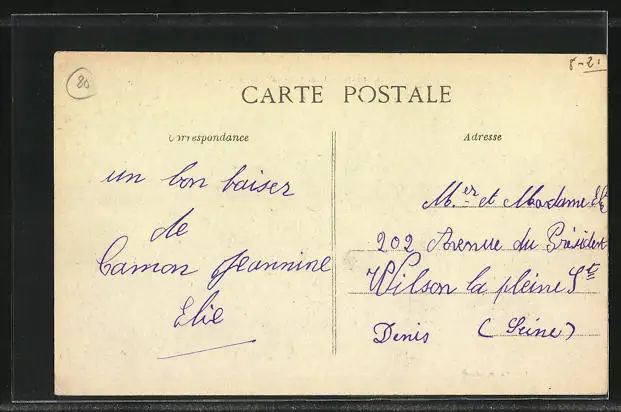 80
CARTE POSTALE
Correspondance
Adresse
un bon baiser
de
Camon Jeannine
Elie
Mer et Madame
202 Avenue du Président
Wilson la pleine Ste
Denis (Seine)